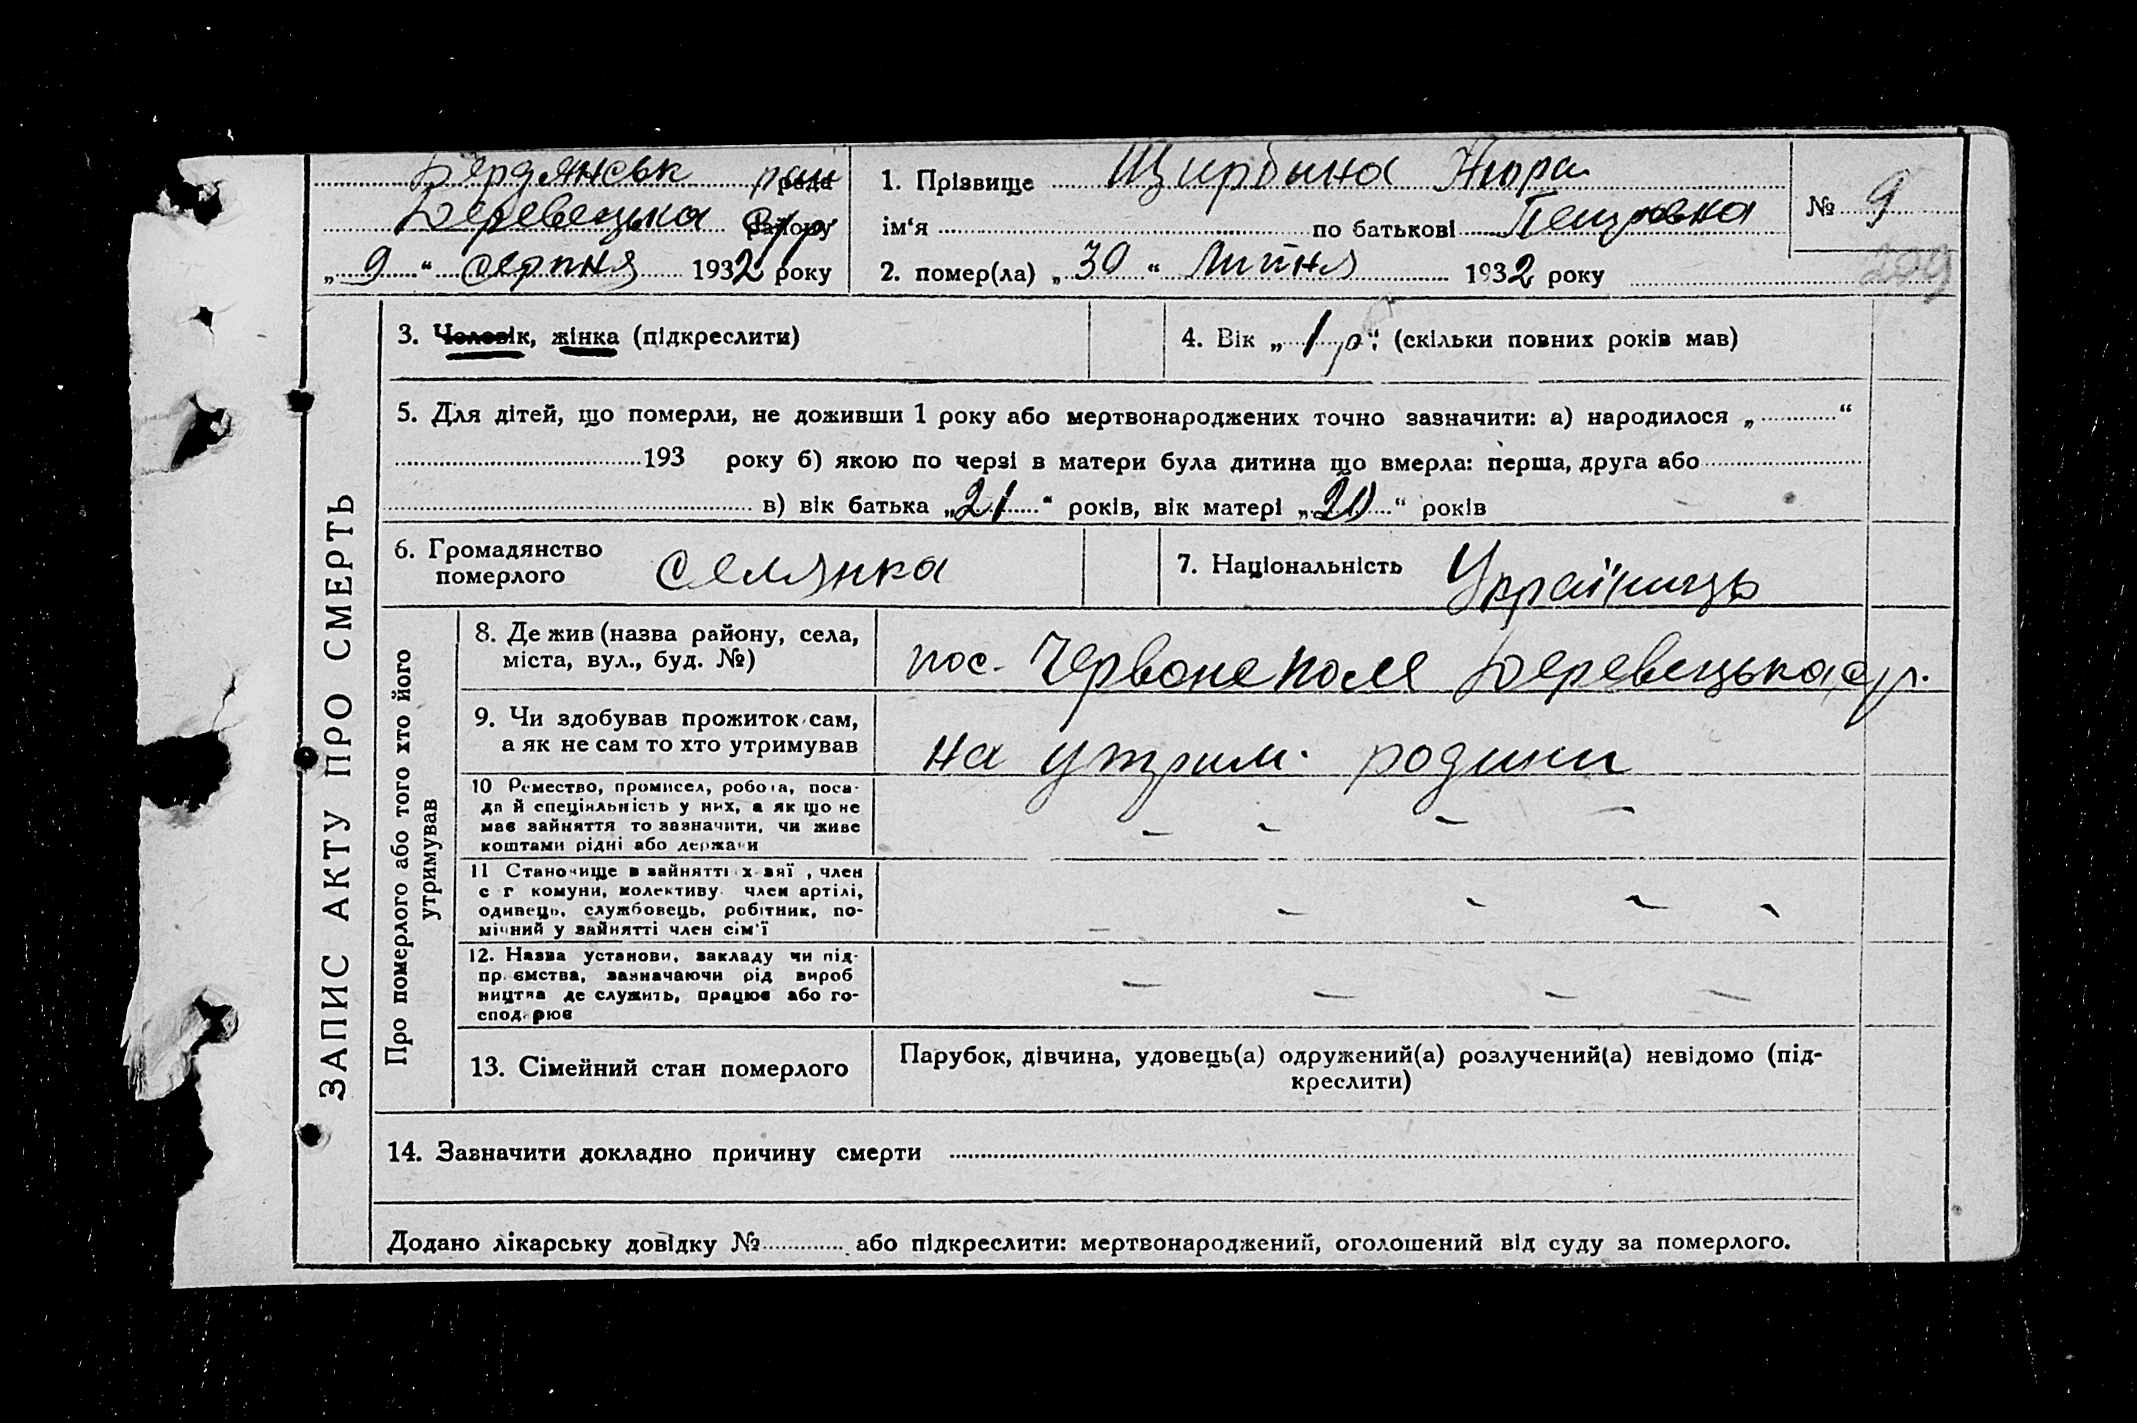 Бердянськ рай
Деревецька с/р.
„ 9 “ серпня 1932 року
1. Прізвище Щирбина Нюра
ім‘я по батькові Петровна
№ 9
2. помер(ла) „ 30 “ липня 1932 року
209
ЗАПИС АКТУ ПРО СМЕРТЬ
3. Чоловік, жінка (підкреслити)
4. Вік „ 1 р “ (скільки повних років мав)
5. Для дітей, що померли, не доживши 1 року або мертвонароджених точно зазначити: а) народилося „ “
193 року б) якою по черзі в матери була дитина що вмерла: перша, друга або
в) вік батька „ 21 “ років, вік матері „ 20 “ років
6. Громадянство
померлого селянка
7. Національність Українць
Про померлого або того хто його
утримував
8. Де жив (назва району, села,
міста, вул., буд. №)
пос. Червоне поле Деревецька с/р.
9. Чи здобував прожиток сам,
а як не сам то хто утримував
на утрим. родини
10 Ремество, промисел, робота, поса-
да й спеціяльність у них, а як що не
має зайняття то зазначити, чи живе
коштами рідні або держави
– – – –
11 Становище в зайнятті , член
с г комуни, колективу член артілі,
одинець, службовець, робітник, по-
мічний у зайнятті член сім‘ї
– – – – –
12. Назва установи, закладу чи під-
приємства, зазначаючи рід вироб
ництва де служить, працює або го-
сподарює
– – – –
13. Сімейний стан померлого
Парубок, дівчина, удовець(а) одружений(а) розлучений(а) невідомо (під-
креслити)
14. Зазначити докладно причину смерти
Додано лікарську довідку № або підкреслити: мертвонароджений, оголошений від суду за померлого.